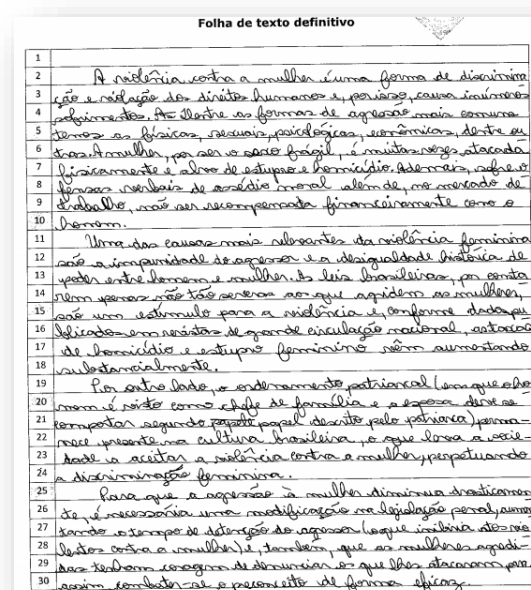 Folha de texto definitivo
1
2 A violência contra a mulher é uma forma de discrimina
3 ção e violação dos direitos humanos e, por isso, causa inúmeros
4 sofrimentos. Dentre as formas de agressão mais comuns
5 temos as físicas, sexuais, psicológicas, econômicas, dentre ou
6 tras. A mulher, por ser o sexo frágil, é muitas vezes atacada
7 fisicamente e alvo de estupro e homicídio. Ademais, sofre o
8 fensas verbais de assédio moral além de, no mercado de
9 trabalho, não ser recompensada financeiramente como o
10 homem.
11 Uma das causas mais relevantes da violência feminina
12 são a impunidade do agressor e a desigualdade histórica de
13 poder entre homem e mulher. As leis brasileiras, por conta
14 rem penas não tão severas aos que agridem as mulheres,
15 são um estímulo para a violência e, conforme dados pu
16 blicados em revistas de grande circulação nacional, as taxas
17 de homicídio e estupro feminino vêm aumentando
18 substancialmente.
19 Por outro lado, o ordenamento patriarcal (em que o ho
20 mem é visto como chefe de família e a esposa deve se
21 comportar segundo papel descrito pelo patriarca) perma-
22 nece presente na cultura brasileira, o que leva a socie-
23 dade a aceitar a violência contra a mulher, perpetuando
24 a discriminação feminina.
25 Para que a agressão à mulher diminua drasticamen
26 te, é necessária uma modificação na legislação penal, aumen
27 tando o tempo de detenção do agressor (o que inibiria atos vio
28 lentos contra a mulher) e, também, que as mulheres agredi-
29 das tenham coragem de denunciar os que lhes atacaram para
30 assim combater-se o preconceito de forma eficaz.